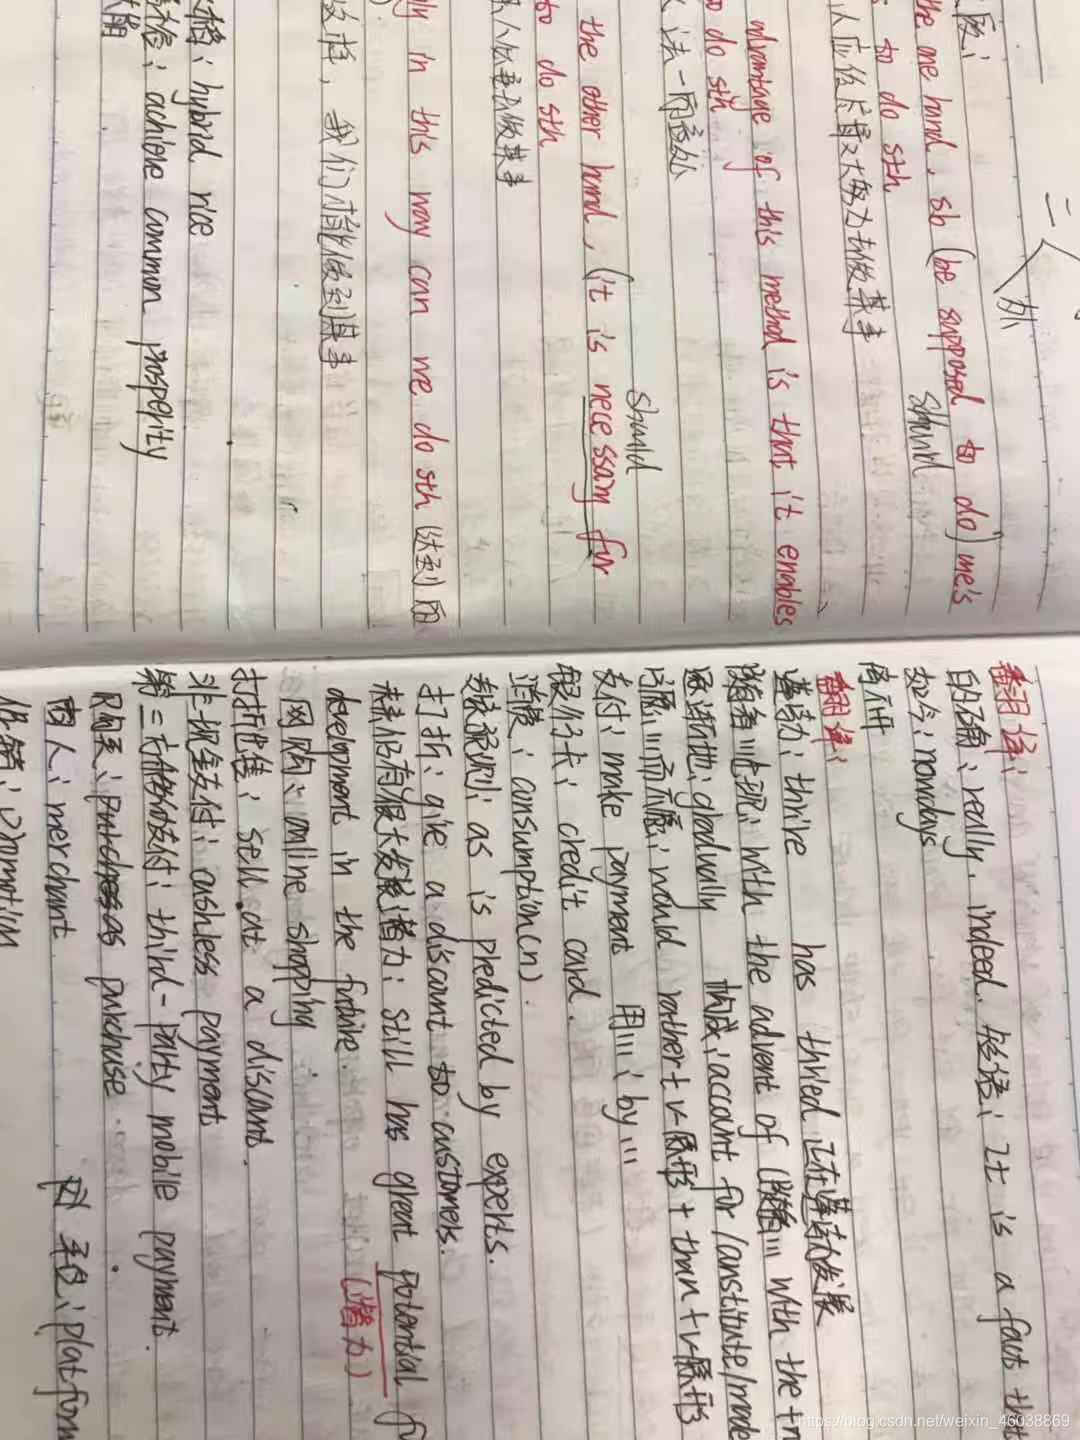 二
外
段：
the one hand, sb (be supposed to do) one's
should
to do sth
人应该尽最大努力去做某事
advantage of this method is that it enables
to do sth
法一的益处
the other hand, (it is necessary for
should
to do sth
人必要去做某事
ly in this way can we do sth 做到
这样，我们才能做到某事
稻：hybrid rice
裕：achieve common prosperity
翻译：
的确：really, indeed. 短语：It is a fact that
如今：nowdays
蓬勃：thrive has thrived 正在蓬勃发展
随着…出现：with the advent of (随着…with the
逐渐地：gradually 构成：account for/constitute/made
宁愿…而不愿：would rather+v原形+than+v原形
支付：make payment 用…：by…
银行卡：credit card.
消费：consumption(n).
专家预测：as is predicted by experts.
打折：give a discount to customers.
未来仍有很大发展潜力：still has great potential f
(潜力)
development in the future.
网购：online shopping
打折促售：sell at a discount.
非现金支付：cashless payment
第三方移动支付：third-party mobile payment.
购买：purchase
商人：merchant 平台：platform
促销：promotion
https://blog.csdn.net/weixin_46038869